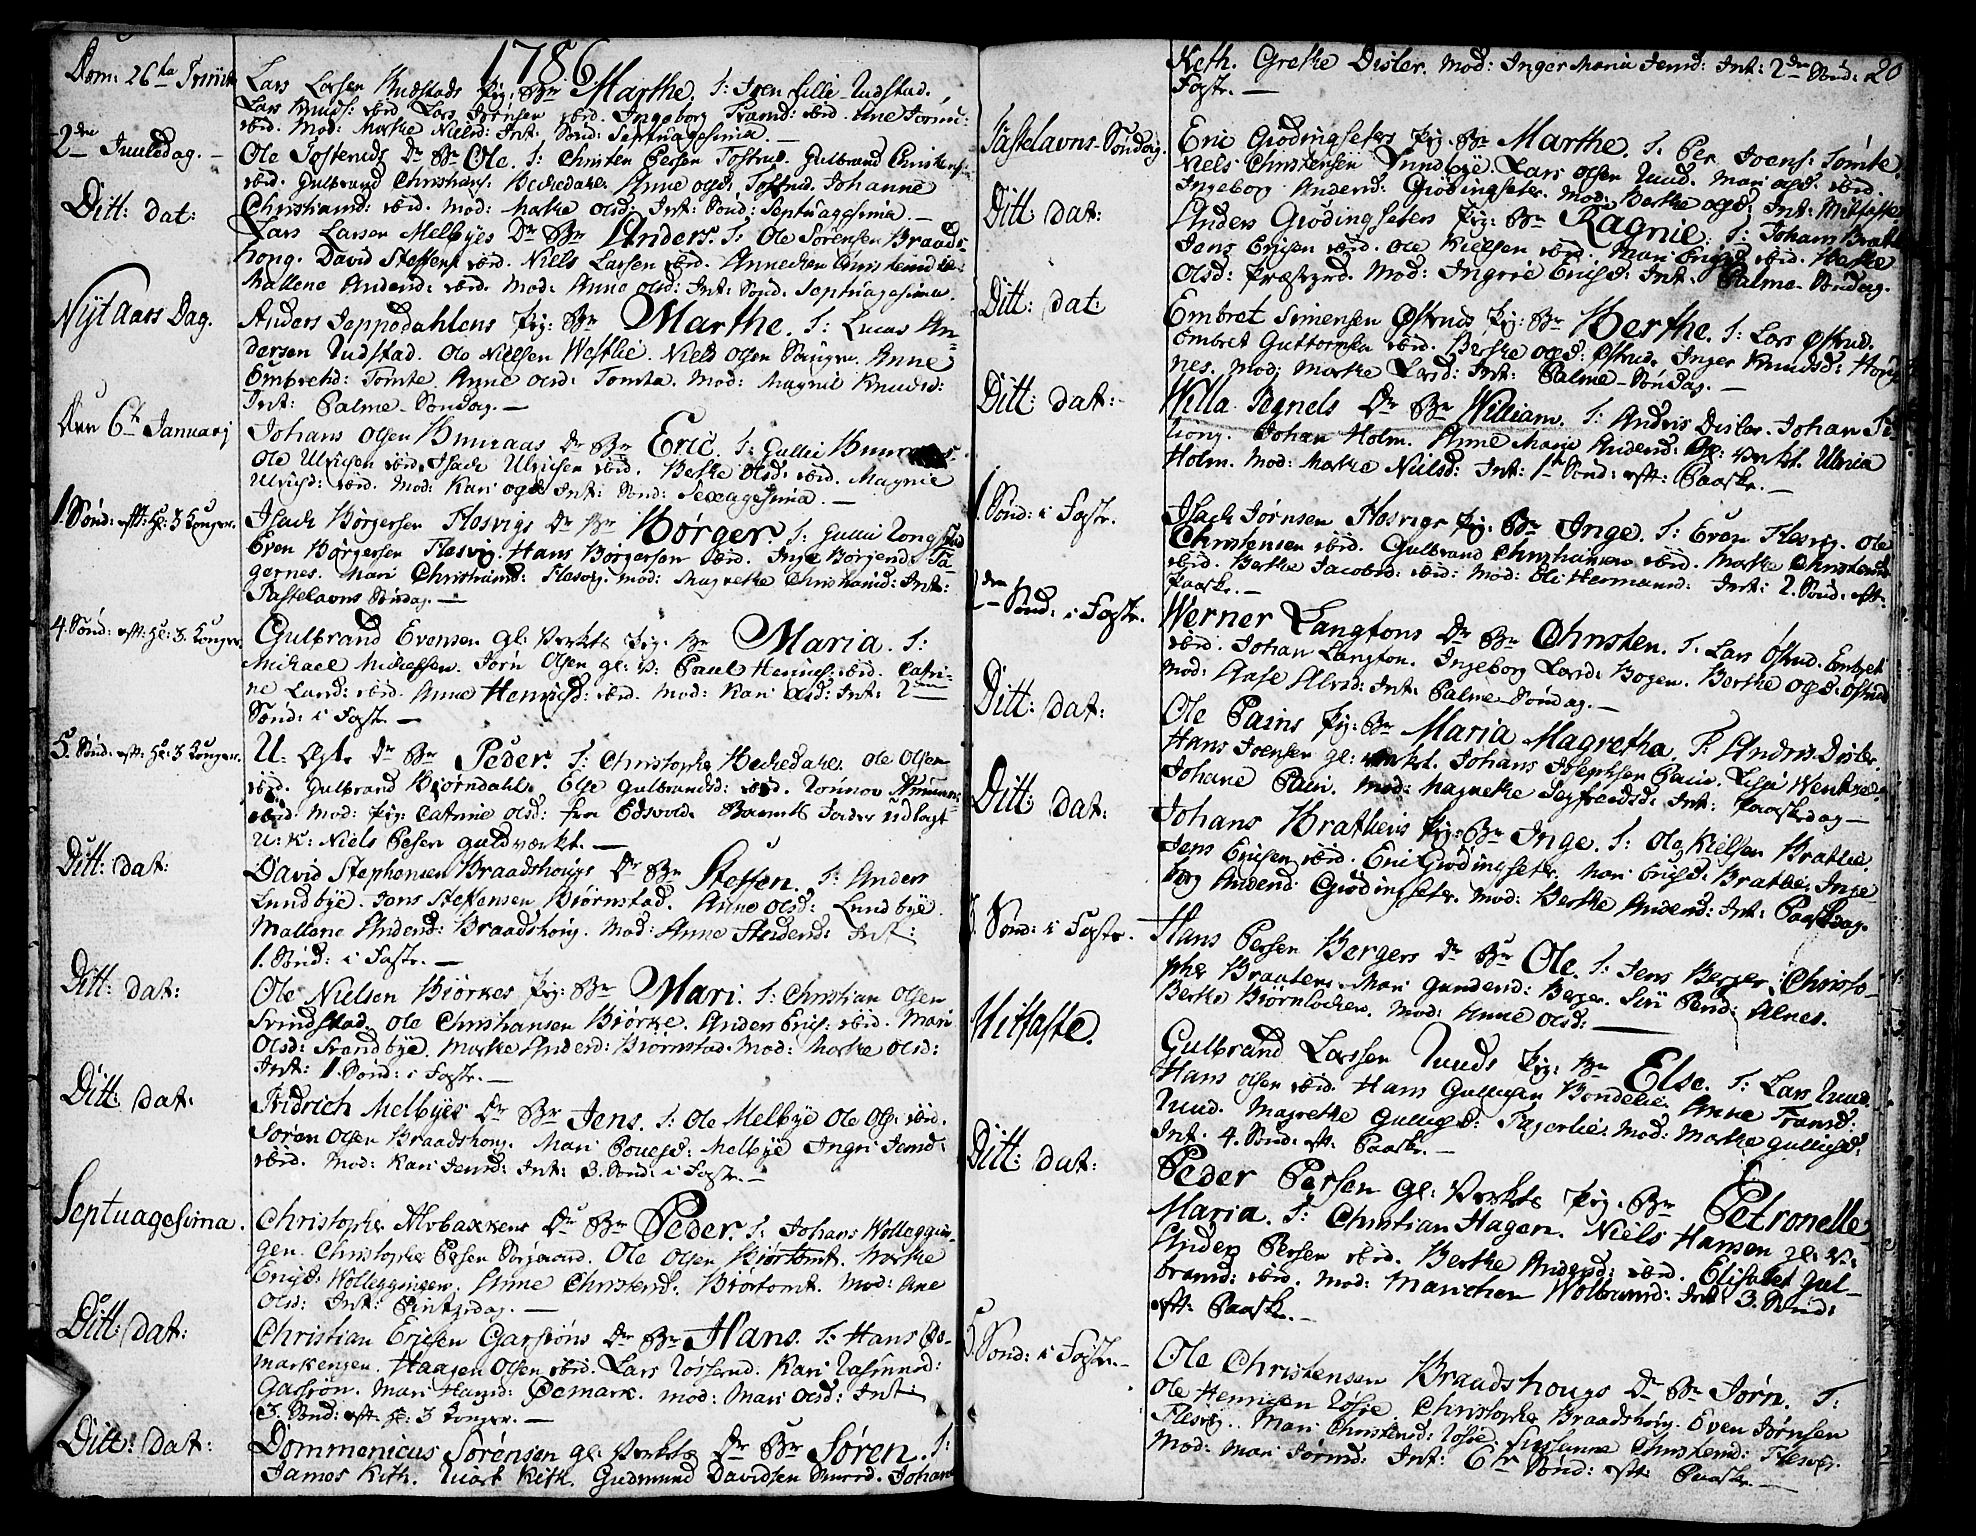 1786
Dom: 26ta Trinit:
Lars Larsen Rudstads Pig: Bn Marthe. T: Iver Lille-Rudstad.
Lars Knuds: ibid. Lars Jørnsen ibid. Ingeborg Framd: ibid. Ane
ibid. Mod: Marthe Nielsd: Int: Sønd: Septuagesima. —
2den Juuledag. —
Ole Tosteruds Dr Bn Ole. T: Christen Persen Tostrup. Gulbrand Christens:
ibid. Gulbrand Christians: Beckedahl. Anne Olsd: Tostrud. Johanne
Christiansd: ibid. Mod: Marthe Olsd: Int: Sønd: Septuagesima. —
Ditt: dat:
Lars Larsen Melbyes Dr Bn Anders. T: Ole Sørensen Braads-
houg. David Steffens: ibid. Niels Larsen ibid. Annechen Christensd ib:
Mallene Andersd: ibid. Mod: Anne Olsd: Int: Sønd. Septuagesima.
Nyt Aars Dag.
Anders Jeppedahlens Pig: Bn Marthe. T: Lucas An-
dersen Rudstad. Ole Nielsen Westlie. Niels Olsen Anne
Embretsd: Tømte. Anne Olsd: Tomta. Mod: Magnil Knudsd:
Int: Palme-Søndag. —
Den 6te Januarj
Johans Olsen Buuraas Dr Bn Eric. T: Gullic
Ole Ulrichsen ibid. Isach Ulrichsen ibid. Berthe Olsd: ibid. Magnie
Ulrichsd: ibid. Mod: Kari Int: Sønd: Sexagesima. —
1. Sønd: eft: He: 3 Konger.
Isach Børgersen Flesvigs Dr Bn Børger. T: Gullic
Even Børgersen Flesvig. Hans Borgersen ibid. Inge Børgersd: Fa-
gernes. Mari Christiansd: Flesvig. Mod: Magrethe Christiansd: Int:
Fastelavns Søndag. —
4. Sønd: eft: He: 3. Konger.
Gulbrand Evensen gl: Værkts Pig: Bn Maria. T:
Michael Michelsen. Jørn Olsen gl: V: Paul Henrichs: ibid. Catri-
ne Larsd: ibid. Anne Henrichsd: ibid. Mod: Kari Olsd: Int: 2den
Sønd: i Fast. —
5. Sønd: eft: He: 3 Konger.
U: Ægte Dr Bn Peder. T: Christopher Beckedahl. Ole Olsen
ibid. Gulbrand Biørndahl. Else Gulbrandsd: ibid. Rønnov
ibid. Mod: Pig: Catrine Olsd: fra Edsvold. Barnets Fader udlagt
U: K: Niels Persen Guldværket. —
Ditt: dat:
David Stephensen Braadshougs Dr Bn Steffen. T: Anders
Lundbye. Jens Steffensen Biørnstad. Anne Olsd: Lundbye.
Mallene Andersd: Braadshoug. Mod: Anne Int:
1. Sønd: i Faste. —
Ditt: dat:
Ole Nielsen Biørkes Pig: Bn Mari. T: Christian Olsen
Svindstad. Ole Christiansen Biørke. Anders Erics: ibid. Mari
Olsd: Strandbye. Marthe Andersd: Biørnstad. Mod: Marthe Olsd:
Int: 1. Sønd: i Faste. —
Ditt: dat:
Fridrich Melbyes Dr Bn Jens. T: Ole Melbye Ole Ols: ibid.
Søren Olsen Braadshoug. Mari Melbye Ingri Jensd:
ibid. Mod: Kari Jensd: Int: 3. Sønd: i Faste. —
Septuagesima.
Christopher Alvbakkens Dr Bn Peder. T: Johans Wolleggin-
gen. Christopher Persen Ole Olsen Biørtomt. Marthe
Ericsd: Wolleggingen. Anne Christensd: Biørtomt. Mod: Ane
Olsd: Int: Pintzedag. —
Ditt: dat:
Christian Ericsen Garsiøns Dr Bn Hans. T: Hans Øe-
markengen. Haagen Olsen ibid. Lars Kari Rasmusd:
Garsiøn. Mari Hansd: Øemark. Mod: Mari Olsd: Int:
3. Sønd: eft: He: 3 Konger. —
Ditt: dat:
Dommenicus Sørensen gl: Værkts Dr Bn Søren. T:
James Keth. Mark Keth. Gudmund Davidsen Johan
20
Keth. Grethe Disler. Mod: Inger Maria Jensd: Int: 2den Sønd: i
Faste. —
Fastelavns-Søndag.
Eric Giødingsæters Pig: Bn Marthe. T: Per Joens: Tømte.
Niels Christensen Lundbye. Lars Olsen Ruud. Mari Olsd: ibid.
Ingeborg Andersd: Giødingseter. Mod: Berthe Olsd: Int: Mitfaste
Ditt dat:
Anders Giødingseters Pig: Bn Ragnie. T: Johans Bratl
Jens Ericsen ibid. Ole Kielsen ibid. Mari Ericsd: ibid. Berthe
Olsd: Præstgrd. Mod: Ingrie Ericsd: Int: Palme-Søndag.
Ditt: dat
Embret Simensen Østruds Pig: Bn Berthe. T: Lars Østrud.
Embret Guttormsen ibid. Berthe Olsd: Østrud. Inger Knudsd:
nes. Mod: Marthe Larsd: Int: Palme-Søndag. —
Ditt: dat:
Willa Pegnels Dr Bn William. T: Andris Disler. Johan
Johan Holm. Anne Marie Andersd: Gl: Værkt. Ulrica
Holm. Mod: Marthe Nielsd: Int: 1te Sønd: eft: Paaske. —
1. Sønd: i Faste.
Isach Jørnsen Flesvigs Pig: Bn Inge. T: Even Flesvig. Ole
Christensen ibid. Gulbrand Christiansen ibid. Marthe Christensd
ibid. Berthe Jacobsd: ibid: Mod: Eli Hermansd: Int: 2. Sønd: eft:
Paaske. —
2den Sønd: i Faste.
Werner Langtons Dr Bn Christen. T. Lars Østrud. Embret
ibid. Johan Langton. Ingeborg Larsd: Bogen. Berthe Olsd: Østrud
Mod: Aase Int: Palme-Søndag. —
Ditt: dat:
Ole Pains Pig: Bn Maria Magretha. T: Andris Disler.
Hans Joensen gl: Værkt. Johans Josephsen Pain. Lisa Wentzel
Johane Pain. Mod: Magrethe Seyfreidsd: Int: Paaskedag —
Ditt: dat:
Johans Brathens Pig: Bn Inge. T: Ole Kielsen Bratlie.
Jens Ericsen ibid. Eric Giødingseter. Mari Ericsd: Bratlie. Inge
borg Andersd: Giødingseter. Mod: Berthe Andersd: Int: Paaskedag.
3. Sønd: i Faste. —
Hans Persen Bergers Dr Bn Ole. T: Jens Berger. Christo-
pher Braaten. Mari Gundersd: Berger. Siri Persd: Alnes.
Berthe Biørnløcken. Mod: Anne Olsd: —
Mitfaste.
Gulbrand Larssen Ruuds Pig: Bn Else. T: Lars Ruud.
Hans Olsen ibid. Hans Gullicsen Bondelie. Anne Framsd:
Ruud. Magrethe Gullicsd: Fagerlie. Mod: Marthe Gullicsd:
Int: 4. Sønd: eft: Paaske. —
Ditt: dat:
Peder Persen gl: Værkts Pig: Bn Petronelle
Maria. T: Christian Hagen. Niels Hansen gl: V:
Anders Persen ibid. Berthe Andersd: ibid. Elisabet Gul-
bransd: ibid. Mod: Marichen Wolbransd: Int: 3. Sønd:
eft: Paaske. —
5. Sønd: i Faste. —
Ole Christensen Braadshougs Dr Bn Jørn. T:
Ole Henricsen Røsie. Christopher Braadshoug. Even Jørnsen
Flesvig. Mari Christensd: Røsie. Susanne Christensd: Flesvig.
Mod: Mari Jørnsd: Int: 6te Sønd: eft: Paaske. —